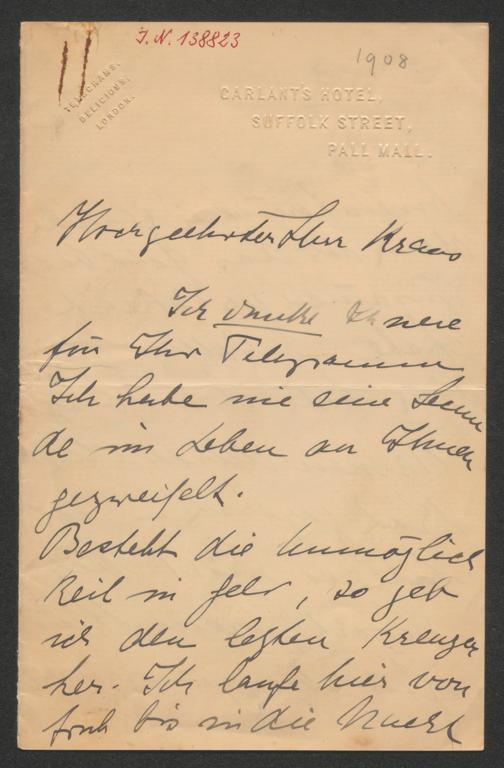 J. N. 138823
1908
TELEGRAMS,
DELICIOUS,
LONDON.
GARLANT'S HOTEL,
SUFFOLK STREET,
PALL MALL.
Hochgeehrter Herr Kraus
Ich danke Ihnen
für Ihr Telegramm
Ich habe nie eine Secun
de im Leben an Ihnen
gezweifelt.
Besteht die Unmöglich
keit in Geld, so geb
ich den letzten Kreuzer
her. Ich laufe hier von
früh bis in die Nacht